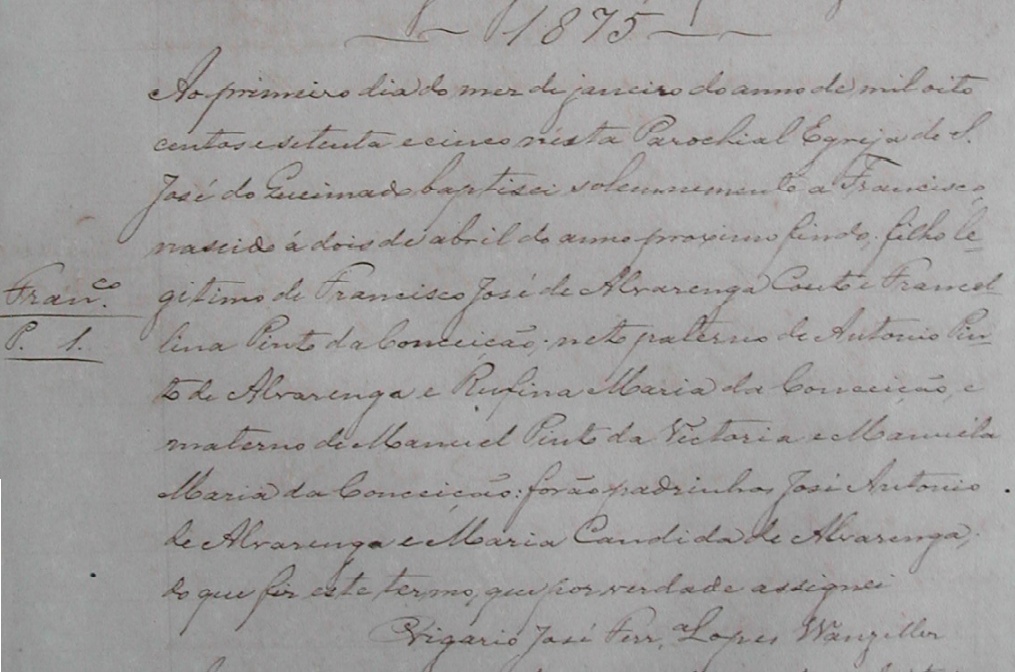 1875
Ao primeiro dia do mez de janeiro do anno de mil oito
centos e setenta e cinco nésta Parochial Egreja de S.
José do Queimado baptisei solemnemente a Francisco,
nascido á dois de abril do anno proximo findo, filho le-
gitimo de Francisco José de Alvarenga Couto e Francel-
Fran.co
lina Pinto da Conceição; neto paterno de Antonio Pin-
P. 1.
to de Alvarenga e Rufina Maria da Conceição, e
materno de Manuel Pinto da Victoria e Manuela
Maria da Conceição: forão padrinhos José Antonio
de Alvarenga e Maria Candida de Alvarenga;
do que fiz este termo, que por verdade assignei
Vigario José Ferr.a Lopes Wanzeller